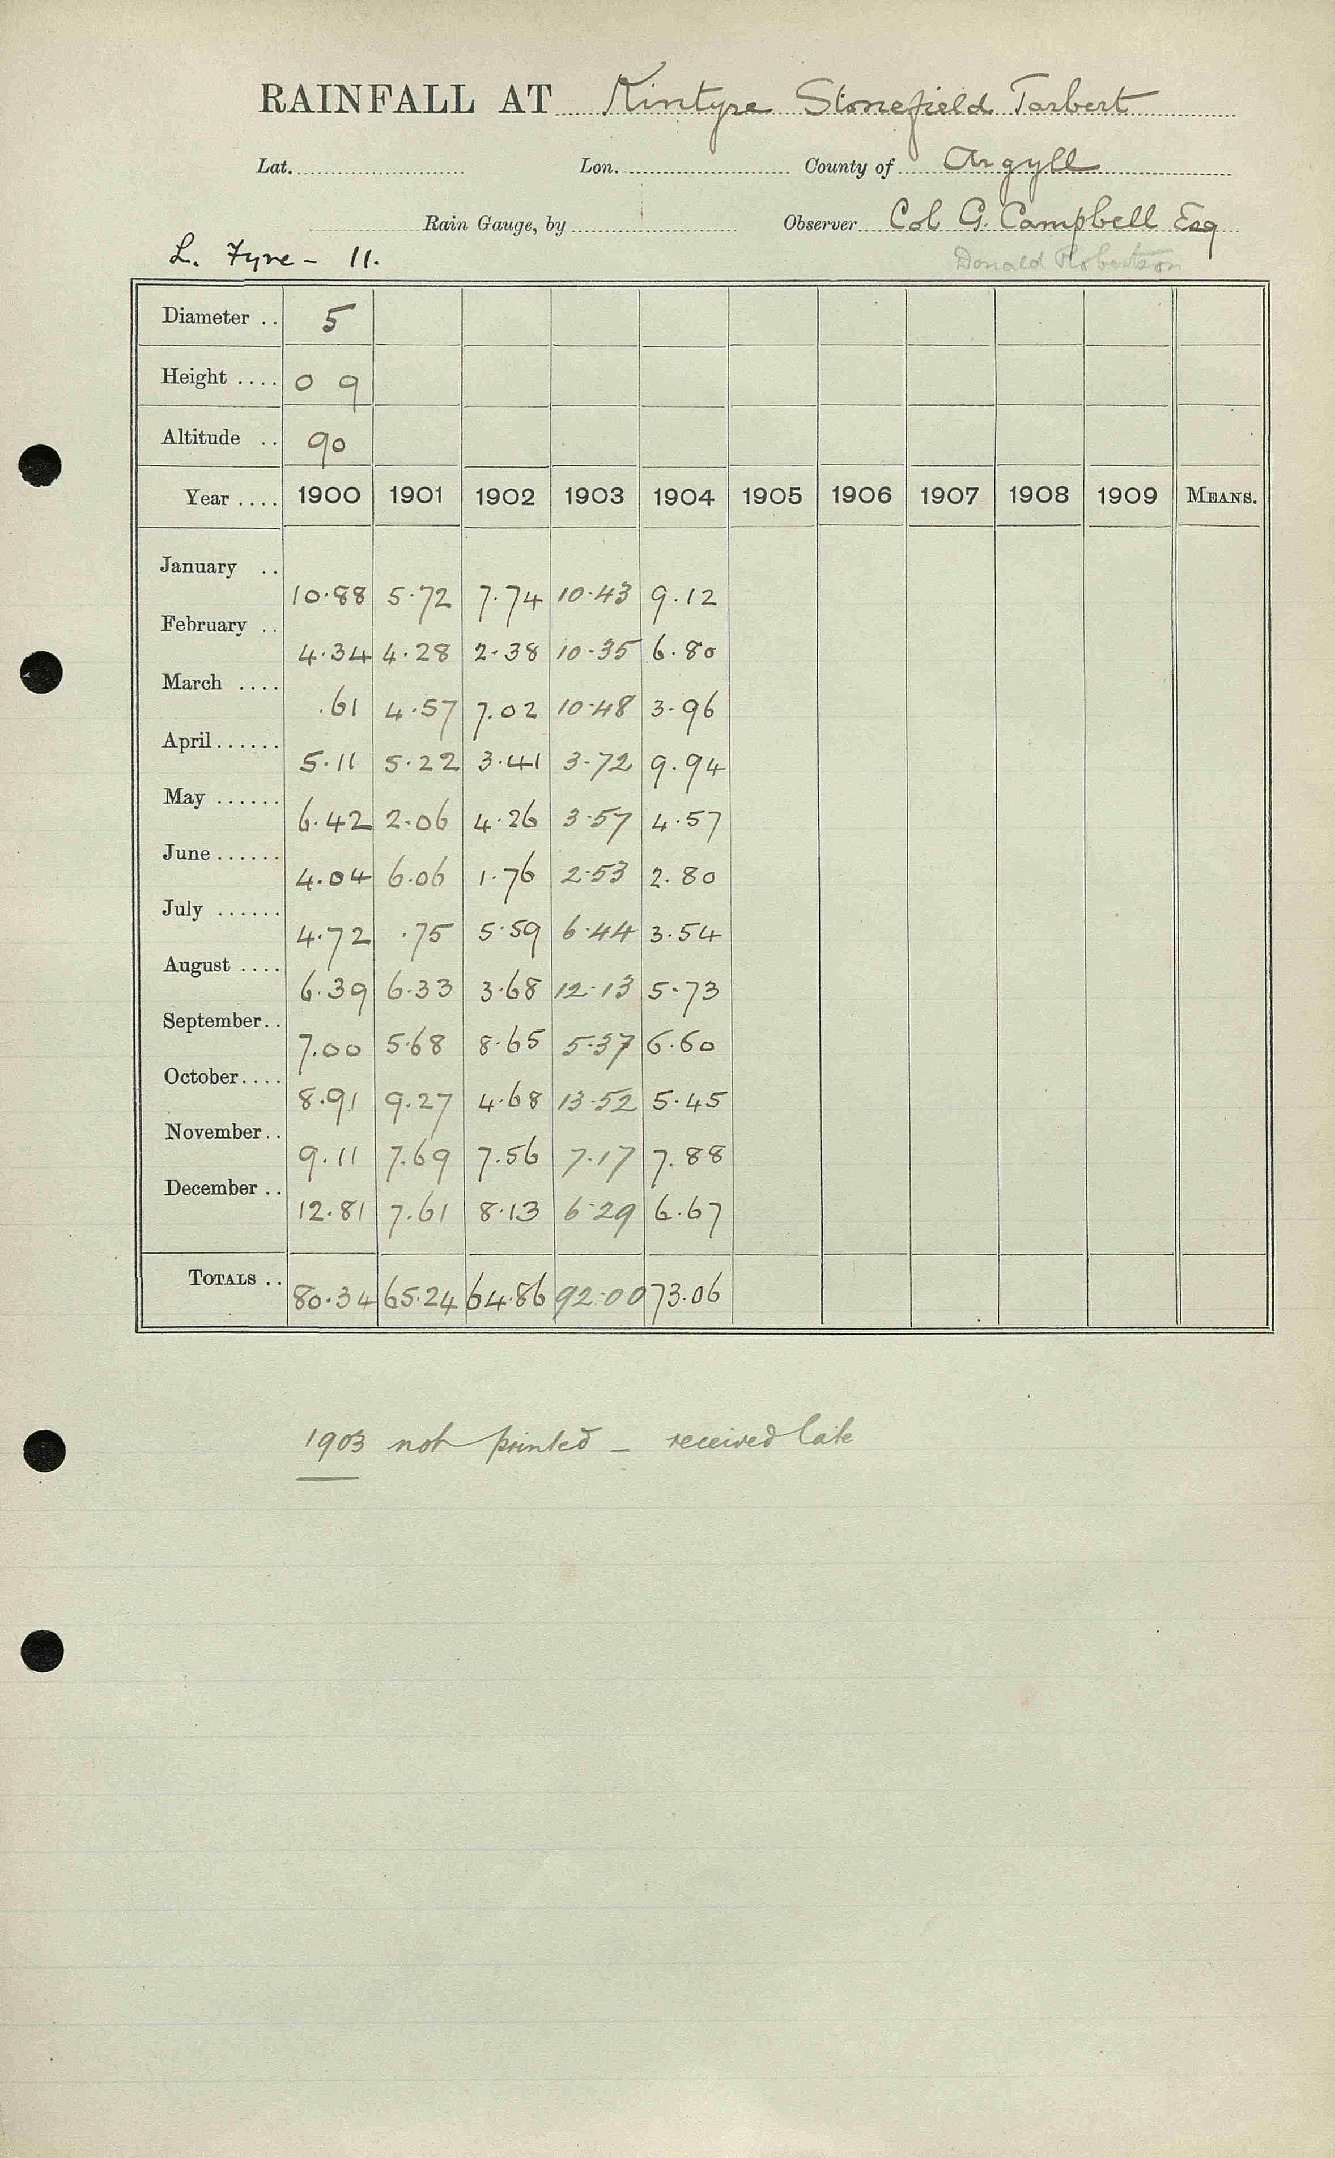 RAINFALL AT Kintyre Stonefield Tarbert
Lat. Lon. County of Argyll
Rain Gauge, by Observer Col G. Campbell Esq
L. Fyne - 11. Donald Robertson
Diameter .. 5
Height .... 0 9
Altitude .. 90
Year .... 1900 1901 1902 1903 1904 1905 1906 1907 1908 1909 MEANS.
January .. 10.88 5.72 7.74 10.43 9.12
February .. 4.34 4.28 2.38 10.35 6.80
March .... .61 4.57 7.02 10.48 3.96
April...... 5.11 5.22 3.41 3.72 9.94
May ...... 6.42 2.06 4.26 3.57 4.57
June...... 4.04 6.06 1.76 2.53 2.80
July ...... 4.72 .75 5.59 6.44 3.54
August .... 6.39 6.33 3.68 12.13 5.73
September.. 7.00 5.68 8.65 5.37 6.60
October.... 8.91 9.27 4.68 13.52 5.45
November.. 9.11 7.69 7.56 7.17 7.88
December .. 12.81 7.61 8.13 6.29 6.67
TOTALS .. 80.34 65.24 64.86 92.00 73.06
1903 not printed - received late